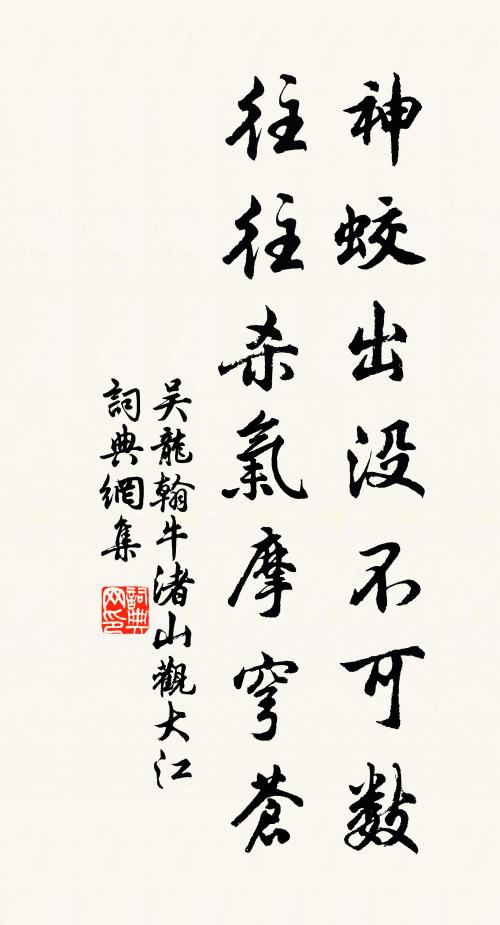 神蛟出没不可数
往往杀氣摩穹蒼
吴龍翰牛渚山觀大江
詞典網集
詞典
网印